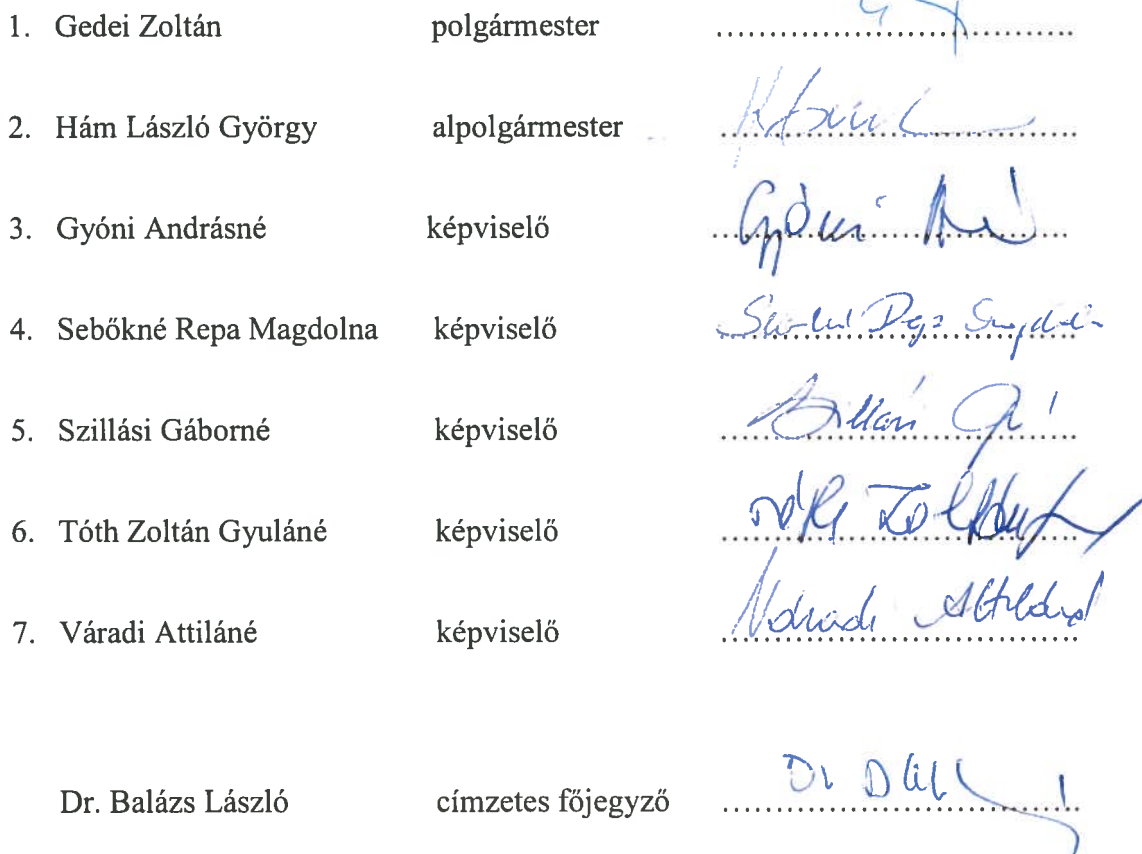 1. Gedei Zoltán polgármester ..............................
2. Hám László György alpolgármester ..............................
3. Gyóni Andrásné képviselő .............................. Gyóni A né
4. Sebőkné Repa Magdolna képviselő ..............................
5. Szillási Gáborné képviselő .............................. Szillási G né
6. Tóth Zoltán Gyuláné képviselő .............................. Tóth Zoltán
7. Váradi Attiláné képviselő .............................. Váradi Attiláné
Dr. Balázs László címzetes főjegyző .............................. Dr